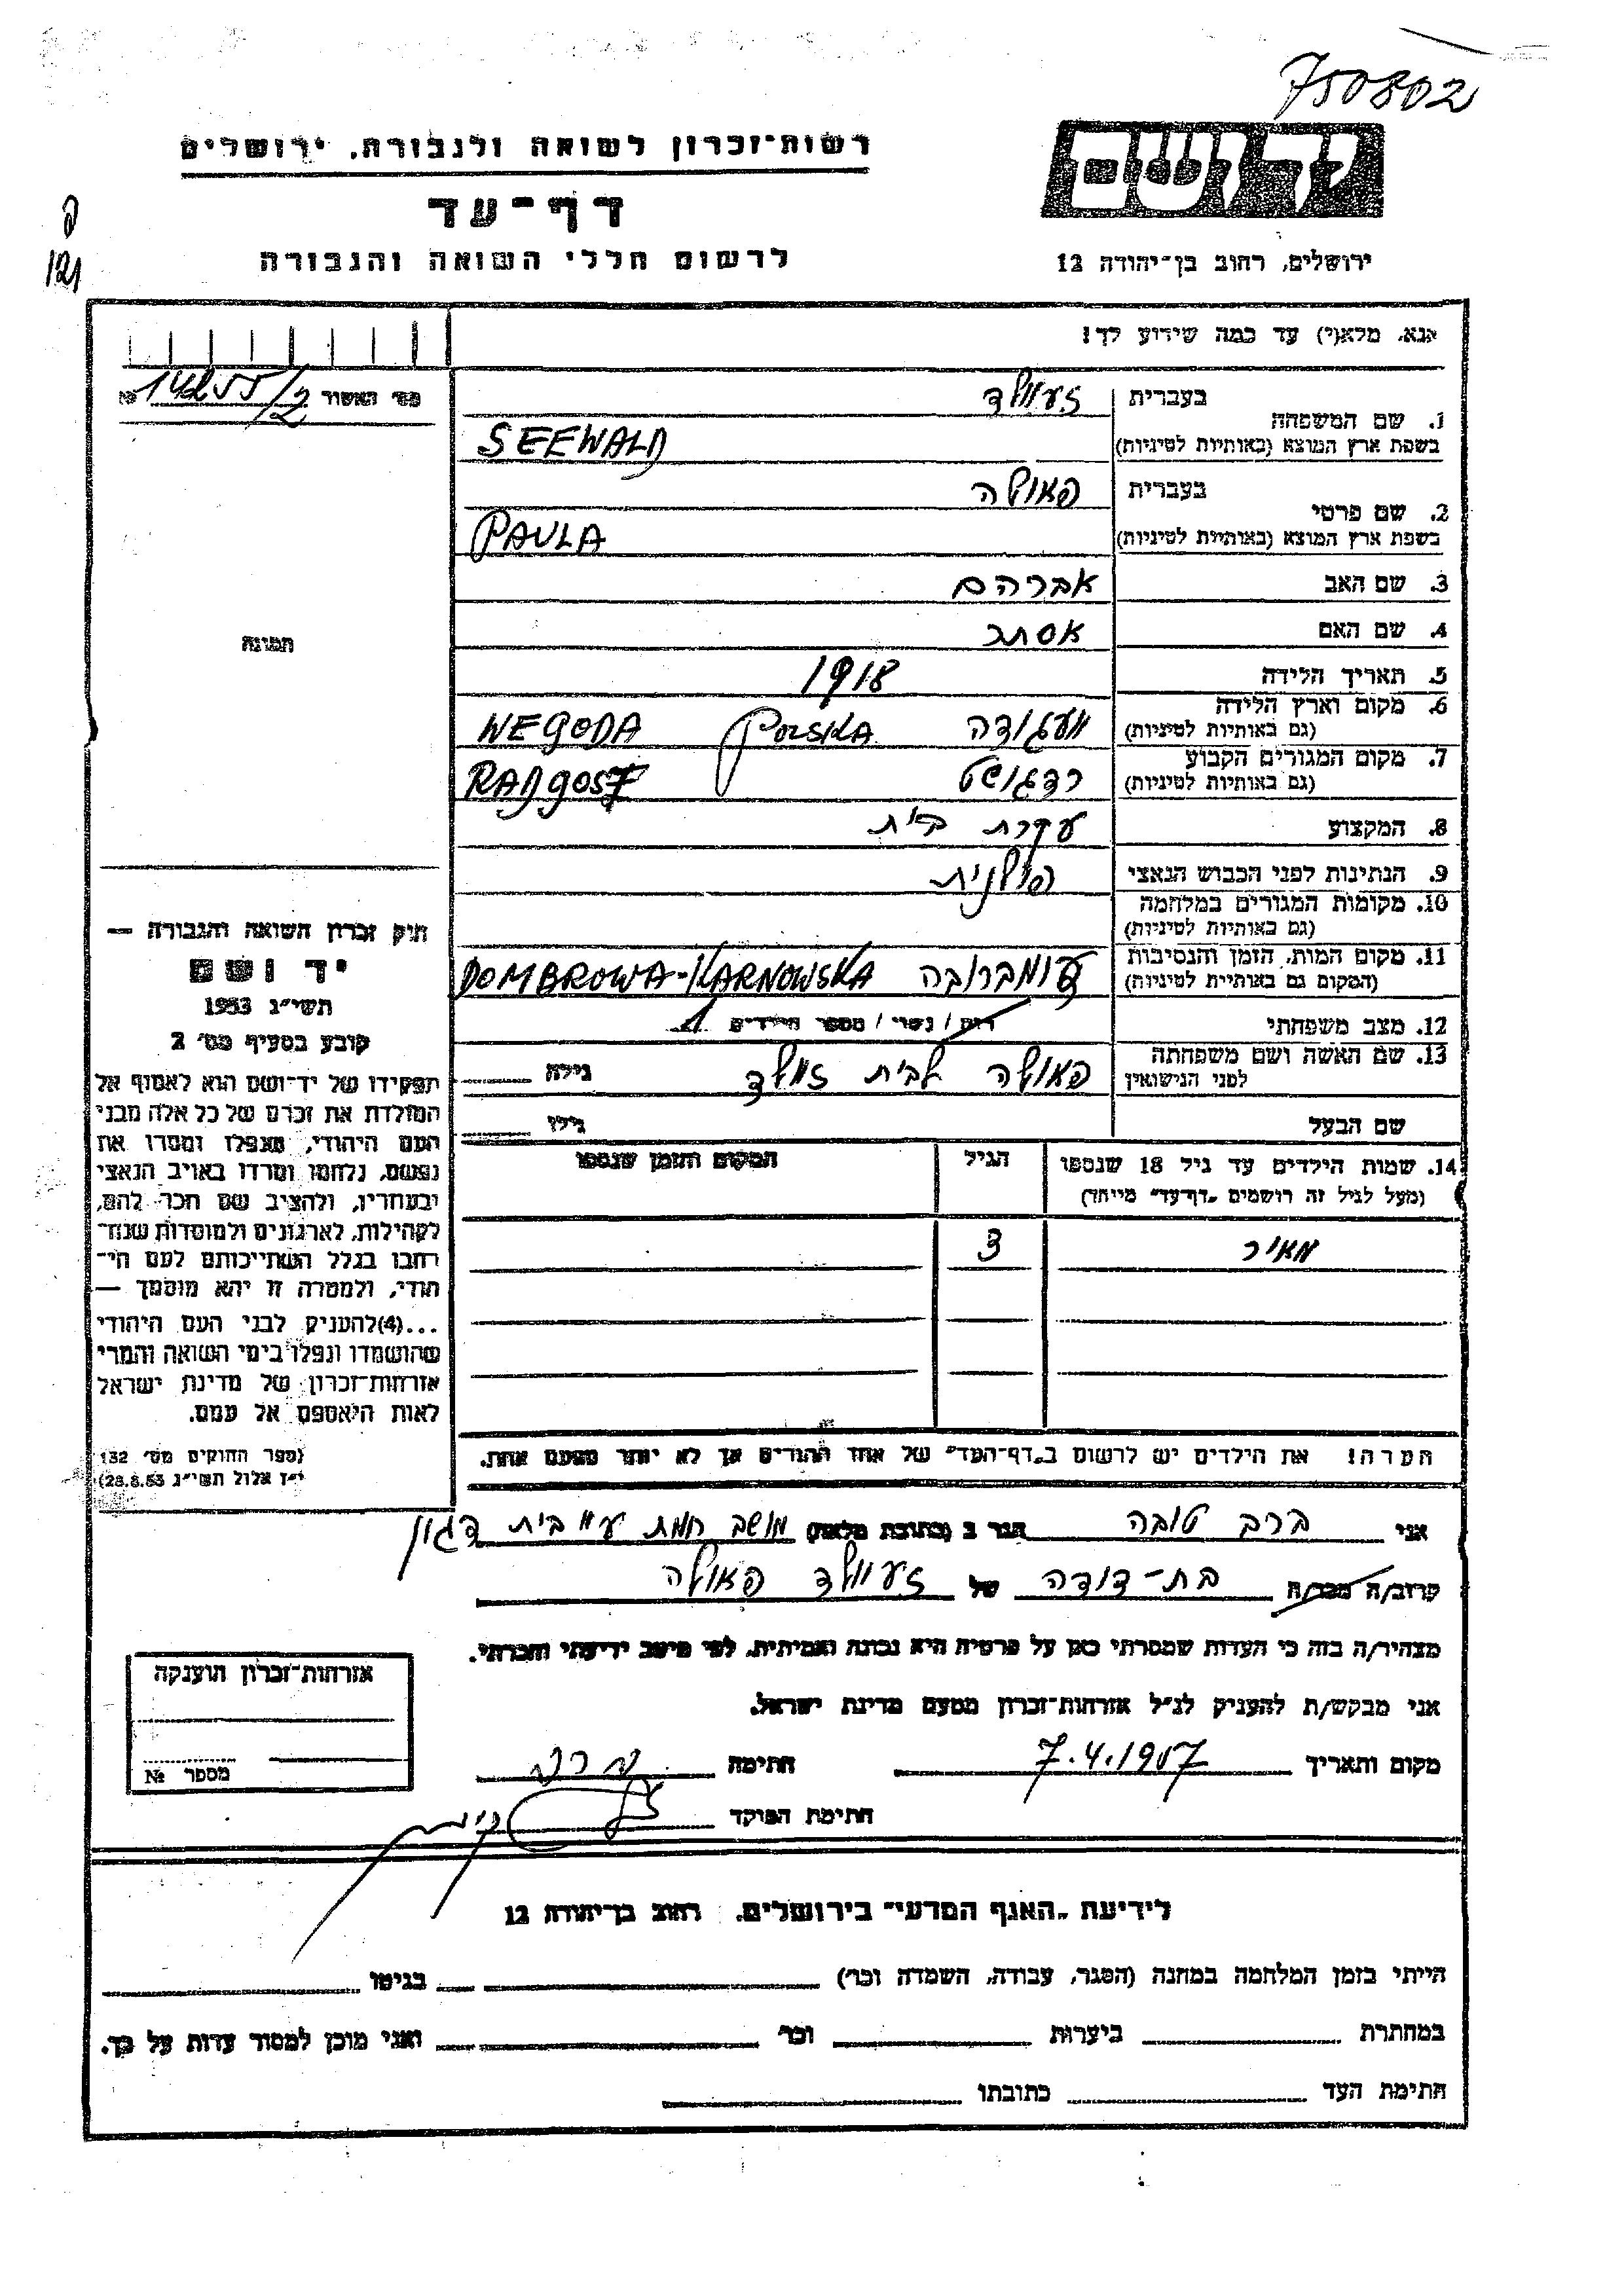 750802
רשות־זכרון לשואה ולגבורה, ירושלים
דף־עד
לרשום חללי השואה והגבורה
ירושלים, רחוב בן־יהודה 12
121
אנא, מלא(י) עד כמה שידוע לך!
מס׳ האשור № 14255/2
תמונה
1. שם המשפחה
בעברית זעוולד
בשפת ארץ המוצא (באותיות לטיניות) SEEWALD
2. שם פרטי
בעברית פאולה
בשפת ארץ המוצא (באותיות לטיניות) PAULA
3. שם האב אברהם
4. שם האם אסתר
5. תאריך הלידה 1918
6. מקום וארץ הלידה
(גם באותיות לטיניות) וועגודה POLSKA WEGODA
7. מקום המגורים הקבוע
(גם באותיות לטיניות) רדגושט RADGOSZ
8. המקצוע עקרת בית
9. הנתינות לפני הכבוש הנאצי פולנית
10. מקומות המגורים במלחמה
(גם באותיות לטיניות)
11. מקום המות, הזמן והנסיבות
(המקום גם באותיות לטיניות) DOMBROWA-KARNOWSKA
12. מצב משפחתי רווק / נשוי / מספר הילדים 1
13. שם האשה ושם משפחתה
לפני הנישואין פאולה לבית זוולד גילה
שם הבעל גילו
14. שמות הילדים עד גיל 18 שנספו
(מעל לגיל זה רושמים „דף־עד״ מיוחד)
הגיל
המקום והזמן שנספו
מאיר 3
הערה! את הילדים יש לרשום ב„דף־העד״ של אחד ההורים אך לא יותר מפעם אחת.
חוק זכרון השואה והגבורה —
יד ושם
תשי״ג 1953
קובע בסעיף מס׳ 2
תפקידו של יד־ושם הוא לאסוף אל
המולדת את זכרם של כל אלה מבני
העם היהודי, שנפלו ומסרו את
נפשם, נלחמו ומרדו באויב הנאצי
ובעוזריו, ולהציב שם וזכר להם,
לקהילות, לארגונים ולמוסדות שנח־
רבו בגלל השתייכותם לעם הי־
הודי, ולמטרה זו יהא מוסמך —
...(4)להעניק לבני העם היהודי
שהושמדו ונפלו בימי השואה והמרי
אזרחות־זכרון של מדינת ישראל
לאות היאספם אל עמם.
(ספר החוקים מס׳ 132
י״ז אלול תשי״ג 28.8.53)
אני ברב טובה הגר ב (כתובת מלאה) מושב חמת ע״י בית דגון
קרוב/ה מכר/ה בת-דודה של זעוולד פאולה
מצהיר/ה בזה כי העדות שמסרתי כאן על פרטיה היא נכונה ואמיתית, לפי מיטב ידיעתי והכרתי.
אני מבקש/ת להעניק לנ״ל אזרחות־זכרון מטעם מדינת ישראל.
מקום ותאריך 7.4.1957 חתימה
חתימת הפוקד
אזרחות־זכרון הוענקה
מספר №
לידיעת „האגף המדעי״ בירושלים, רחוב בן־יהודה 12
הייתי בזמן המלחמה במחנה (הסגר, עבודה, השמדה וכו׳) בגיטו
במחתרת ביערות וכו׳ ואני מוכן למסור עדות על כך.
חתימת העד כתובתו